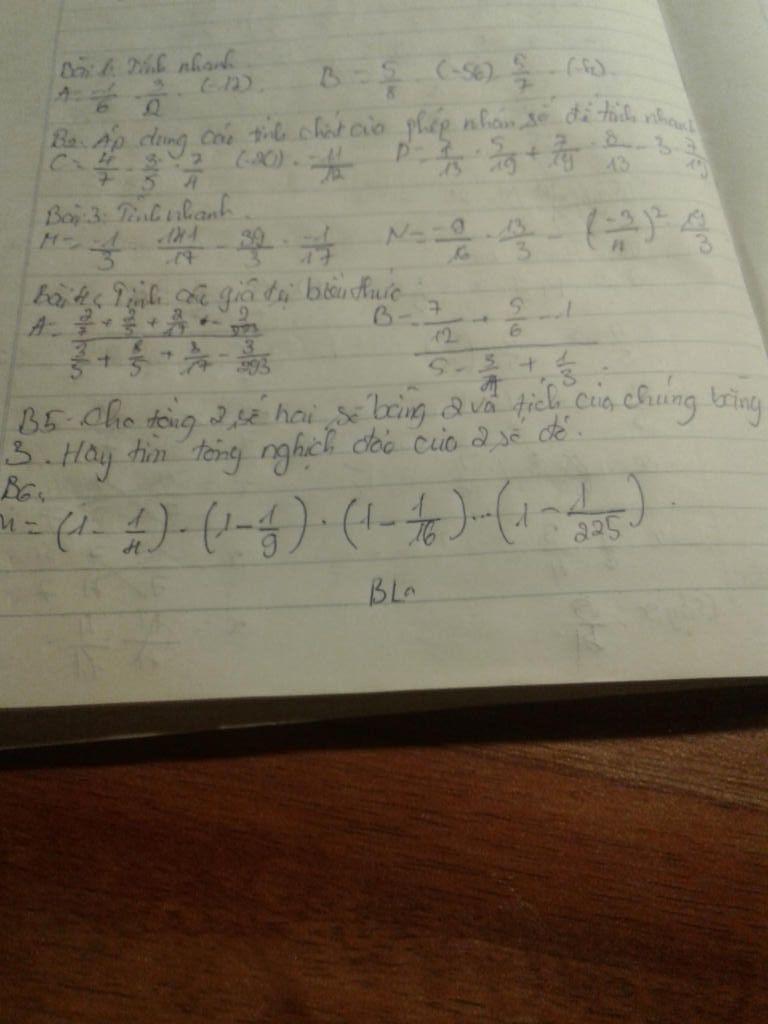 Bài 1. Tính nhanh
A = -1/6 · 3/2 · (-12). B = 5/8 · (-56) · 5/7 ·
B2. Áp dụng các tính chất của phép nhân số để tính nhanh
C = 4/7 · 3/5 · 7/4 · (-20) · -11/12 P = 1/13 · 5/19 + 7/19 · 8/13 - 3 · 7/19
Bài 3. Tính nhanh.
M = -1/3 · 141/17 - 39/3 · -1/17 N = -9/16 · 13/3 - (-3/4)² · 19/3
Bài 4. Tính các giá trị biểu thức
A = B = 7/12 + 5/6 - 1
5 - 3/4 + 1/3
B5. Cho tổng 2 số hai số bằng 2 và tích của chúng bằng
3. Hãy tìm tổng nghịch đảo của 2 số đó.
B6.
M = (1 - 1/4) · (1 - 1/9) · (1 - 1/16) ... (1 - 1/225).